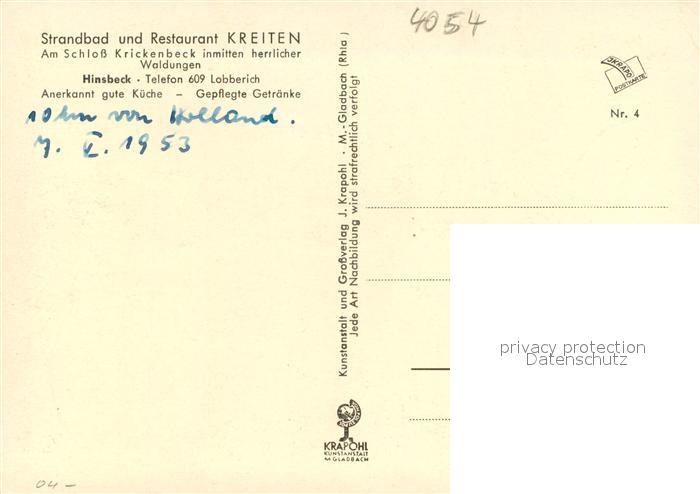 4054
Strandbad und Restaurant KREITEN
Am Schloß Krickenbeck inmitten herrlicher
Waldungen
Hinsbeck · Telefon 609 Lobberich
Anerkannt gute Küche – Gepflegte Getränke
10 km von Holland.
7. V. 1953
SKRAPO
POSTKARTE
Nr. 4
Kunstanstalt und Großverlag J. Krapohl · M.-Gladbach (Rhld.)
Jede Art Nachbildung wird strafrechtlich verfolgt
privacy protection
Datenschutz
KRAPOHL
KUNSTANSTALT
M GLADBACH
04 –